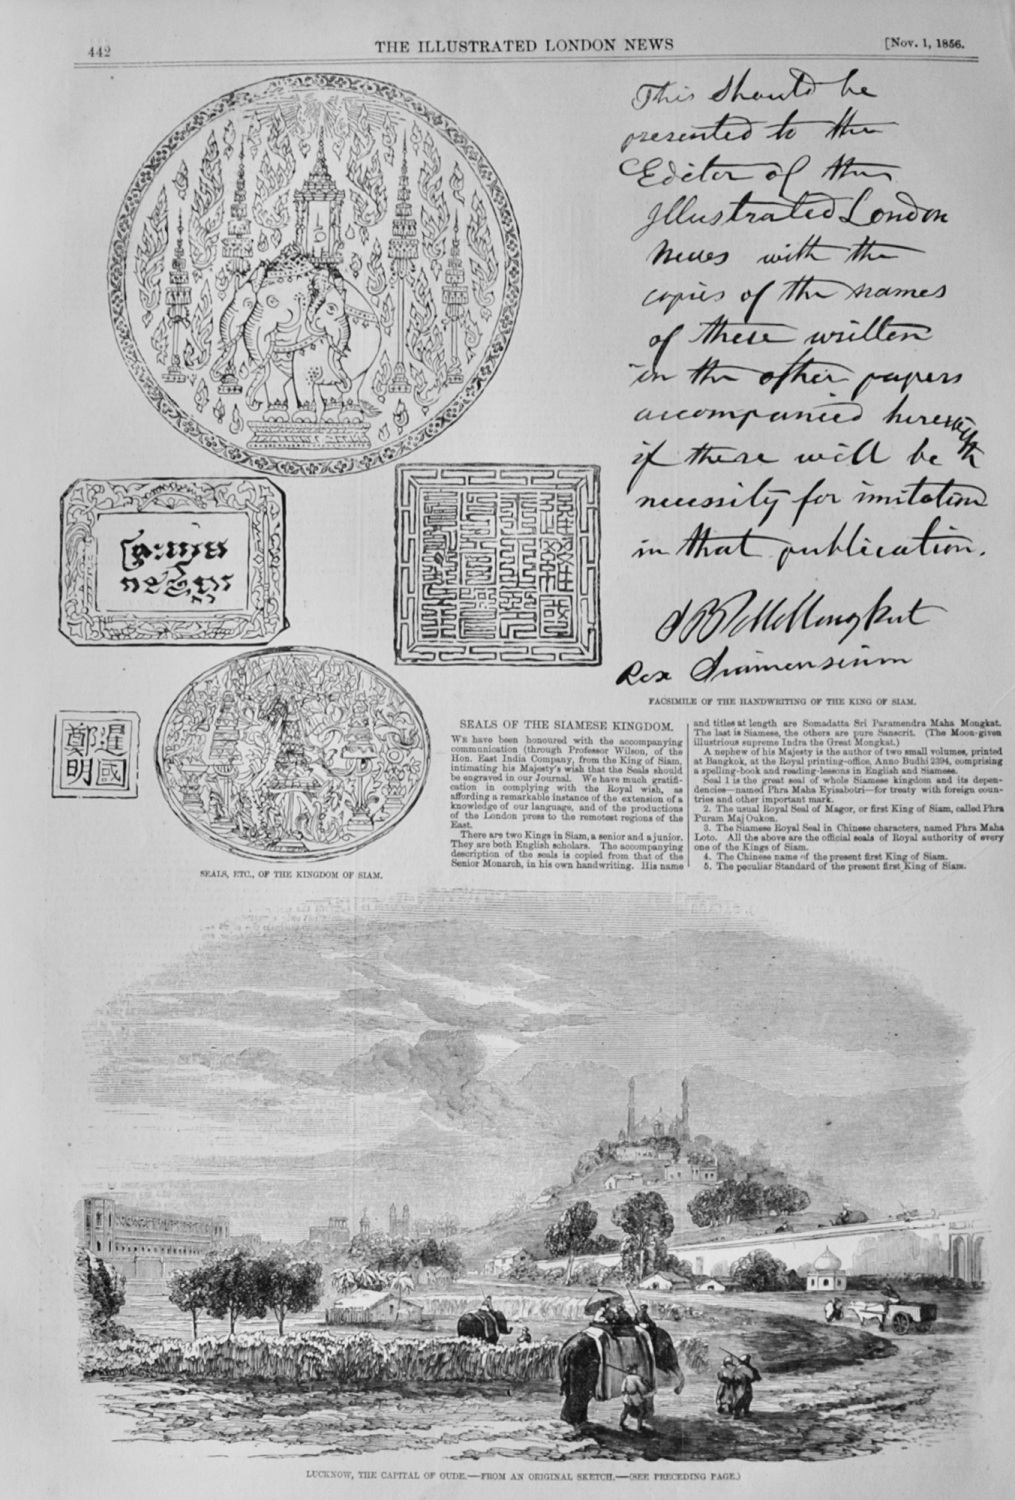 442
THE ILLUSTRATED LONDON NEWS
[Nov. 1, 1856.
This should be
presented to the
Editor of the
Illustrated London
News with the
copies of the names
of these written
in the other papers
accompanied herewith
if there will be
necessity for imitation
in that publication.
Mongkut
Rex Siamensium
FACSIMILE OF THE HANDWRITING OF THE KING OF SIAM.
暹國
鄭明
SEALS, ETC., OF THE KINGDOM OF SIAM.
SEALS OF THE SIAMESE KINGDOM.
WE have been honoured with the accompanying
communication (through Professor Wilson, of the
Hon. East India Company, from the King of Siam,
intimating his Majesty's wish that the Seals should
be engraved in our Journal. We have much gratifi-
cation in complying with the Royal wish, as
affording a remarkable instance of the extension of a
knowledge of our language, and of the productions
of the London press to the remotest regions of the
East.
There are two Kings in Siam, a senior and a junior.
They are both English scholars. The accompanying
description of the seals is copied from that of the
Senior Monarch, in his own handwriting. His name
and titles at length are Somadatta Sri Paramendra Maha Mongkat.
The last is Siamese, the others are pure Sanscrit. (The Moon-given
illustrious supreme Indra the Great Mongkat.)
A nephew of his Majesty is the author of two small volumes, printed
at Bangkok, at the Royal printing-office, Anno Budhi 2394, comprising
a spelling-book and reading-lessons in English and Siamese.
Seal 1 is the great seal of whole Siamese kingdom and its depen-
dencies—named Phra Maha Eyisabotri—for treaty with foreign coun-
tries and other important mark.
2. The usual Royal Seal of Magor, or first King of Siam, called Phra
Puram Maj Oukon.
3. The Siamese Royal Seal in Chinese characters, named Phra Maha
Loto. All the above are the official seals of Royal authority of every
one of the Kings of Siam.
4. The Chinese name of the present first King of Siam.
5. The peculiar Standard of the present first King of Siam.
LUCKNOW, THE CAPITAL OF OUDE.—FROM AN ORIGINAL SKETCH.—(SEE PRECEDING PAGE.)